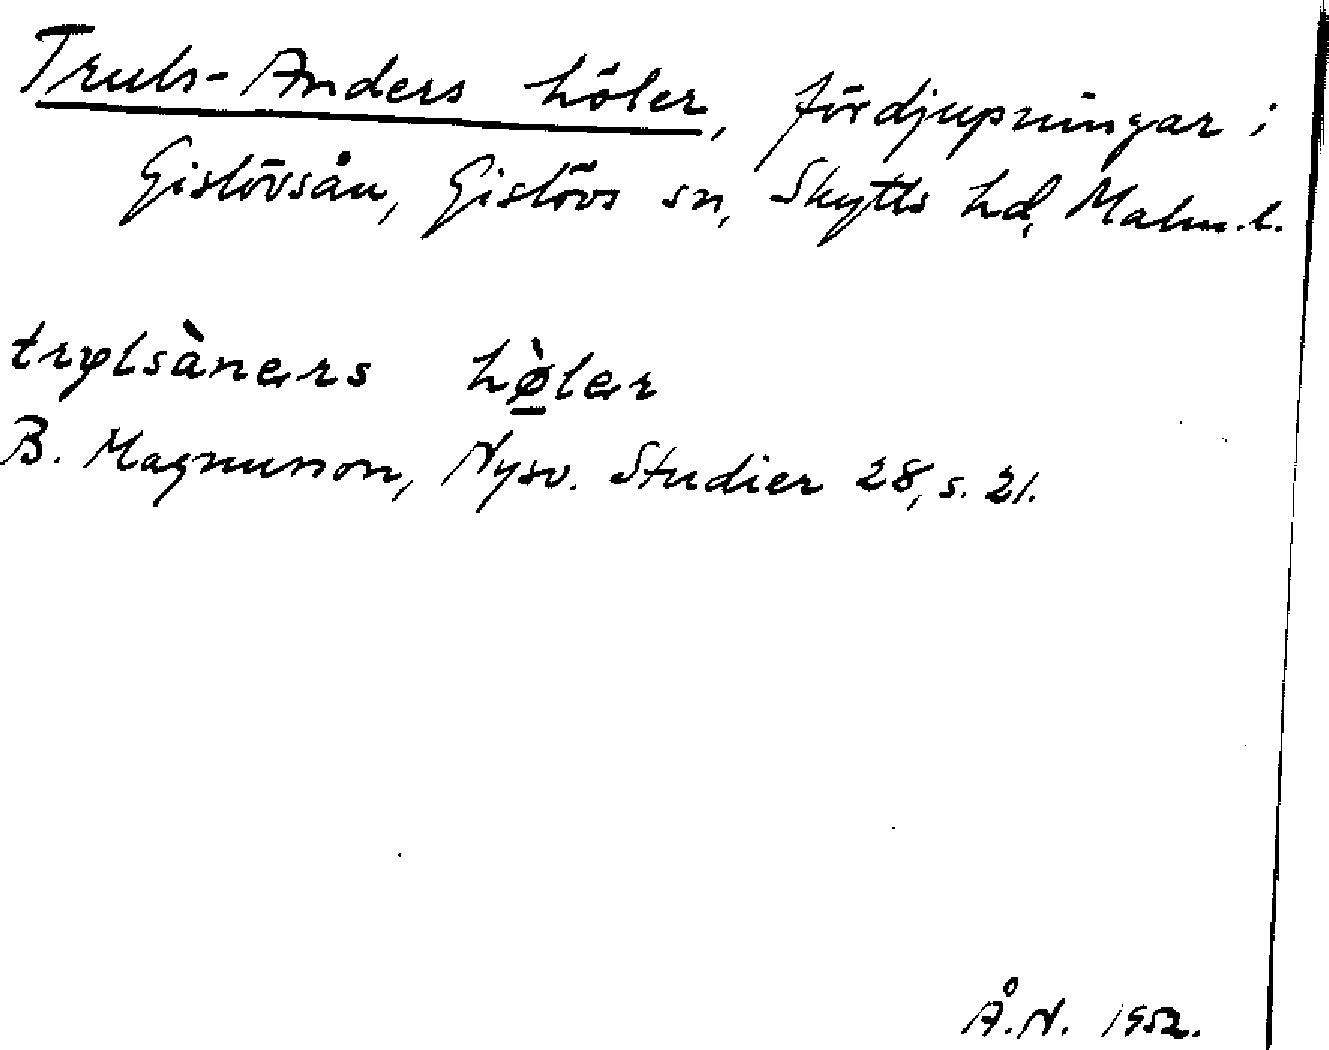 Truls-Anders höler, fördjupningar i
Gislövsån, Gislövs sn, Skytts hd, Malm.l.
trølsàners hø̀ler
B. Magnusson, Nysv. Studier 28, s. 21.
Å.N. 1952.